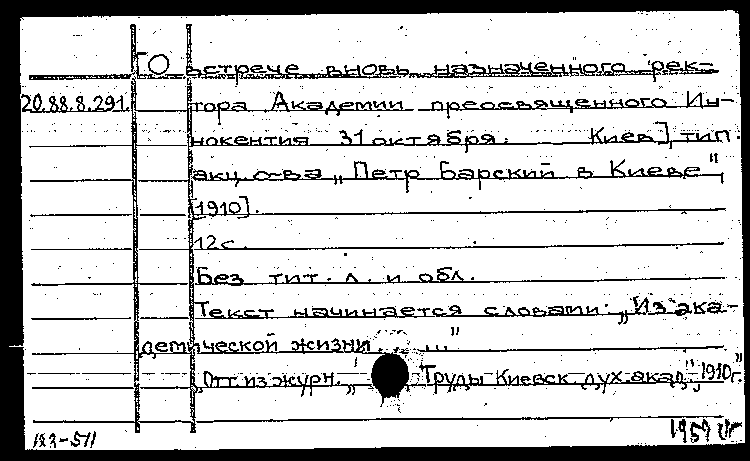 [О встрече вновь назначенного рек-
20.88.8.291. тора Академии преосвященного Ин-
нокентия 31 октября. Киев], тип.
акц. о-ва „Петр Барский в Киеве",
[1910].
12 с.
Без тит. л. и обл.
Текст начинается словами: „Из ака-
демической жизни. ..."
„Отт. из журн. „Труды Киевск. дух. акад.", 1910 г."
183-511